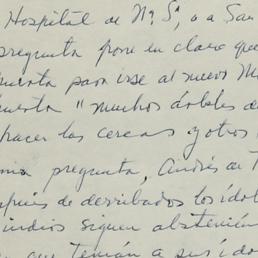 Hospital de Nª Sª, o a San
pregunta pone en claro que
puesta para irse al nuevo M
puesta "muchos dobles de
hacer las cercas y otros
ma pregunta, Andrés de T
spués de derribados los ídol
indios siguen absteni
que temían a sus ído